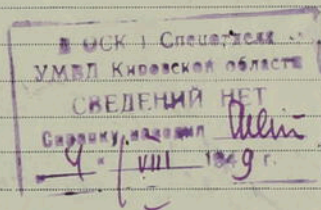 В ОСК 1 Спецотдела
УМВД Кировской области
СВЕДЕНИЙ НЕТ
Справку наводил
"4" VIII 1949 г.